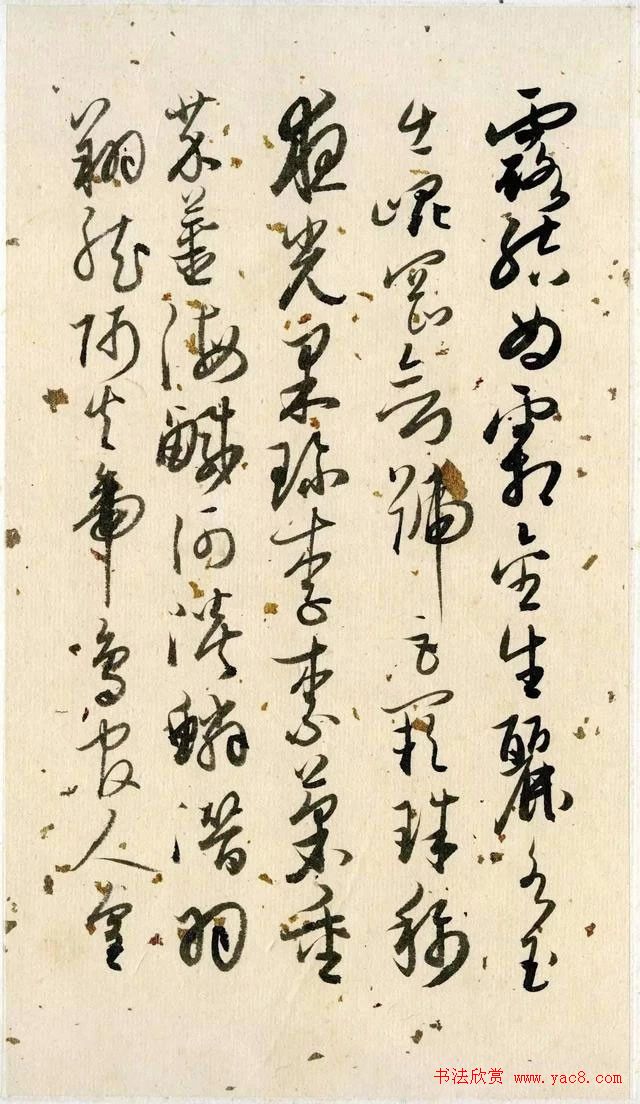 露結為霜金生麗水玉
出崐岡劍號巨闕珠稱
夜光果珍李柰菜重
芥薑海鹹河淡鱗潛羽
翔龍師火帝鳥官人皇
书法欣赏 www.yac8.com